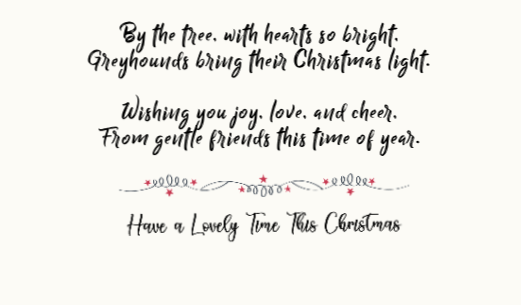 By the tree, with hearts so bright,
Greyhounds bring their Christmas light.
Wishing you joy, love, and cheer,
From gentle friends this time of year.
Have a Lovely Time This Christmas